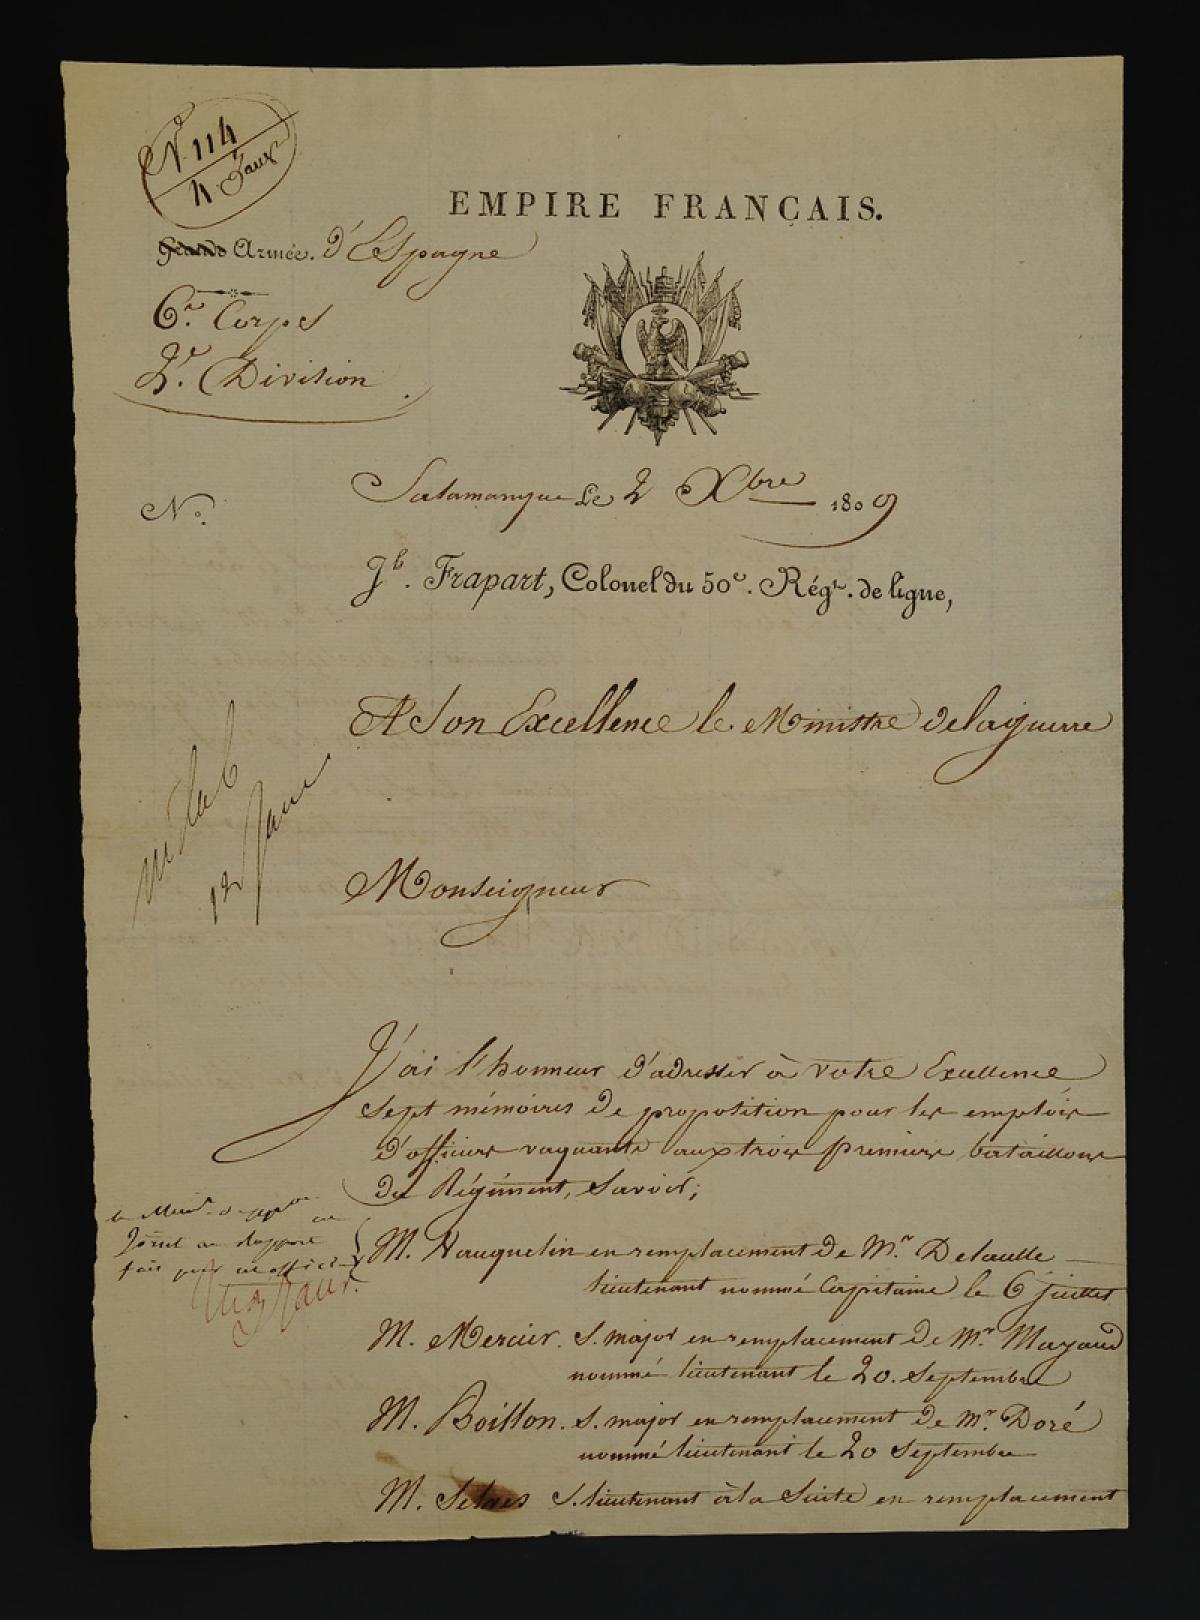 N° 114
4 Janvr
EMPIRE FRANÇAIS.
Grande Armée. d'Espagne
6.e Corps
2.e Division
Salamanque Le 2 Xbre 1809
N°.
Jh. Frapart, Colonel du 50e. Régt. de ligne,
A Son Excellence le Ministre de la guerre
12 Janv
Monseigneur
J'ai l'honneur d'adresser à votre Excellence
Sept mémoires de proposition pour les emplois
d'officiers vaquants aux trois premiers bataillons
du Régiment, Savoir;
au Rapport
fait pour cet officier
M. Vauquelin en remplacement de Mr. Delaulle
lieutenant nommé Capitaine le 6 juillet
M. Mercier. S. major en remplacement de Mr. Mayaud
nommé lieutenant le 20. Septembre
M. Boisson. S. major en remplacement de Mr. Doré
nommé lieutenant le 20 Septembre
M. S. lieutenant à la Suite en remplacement